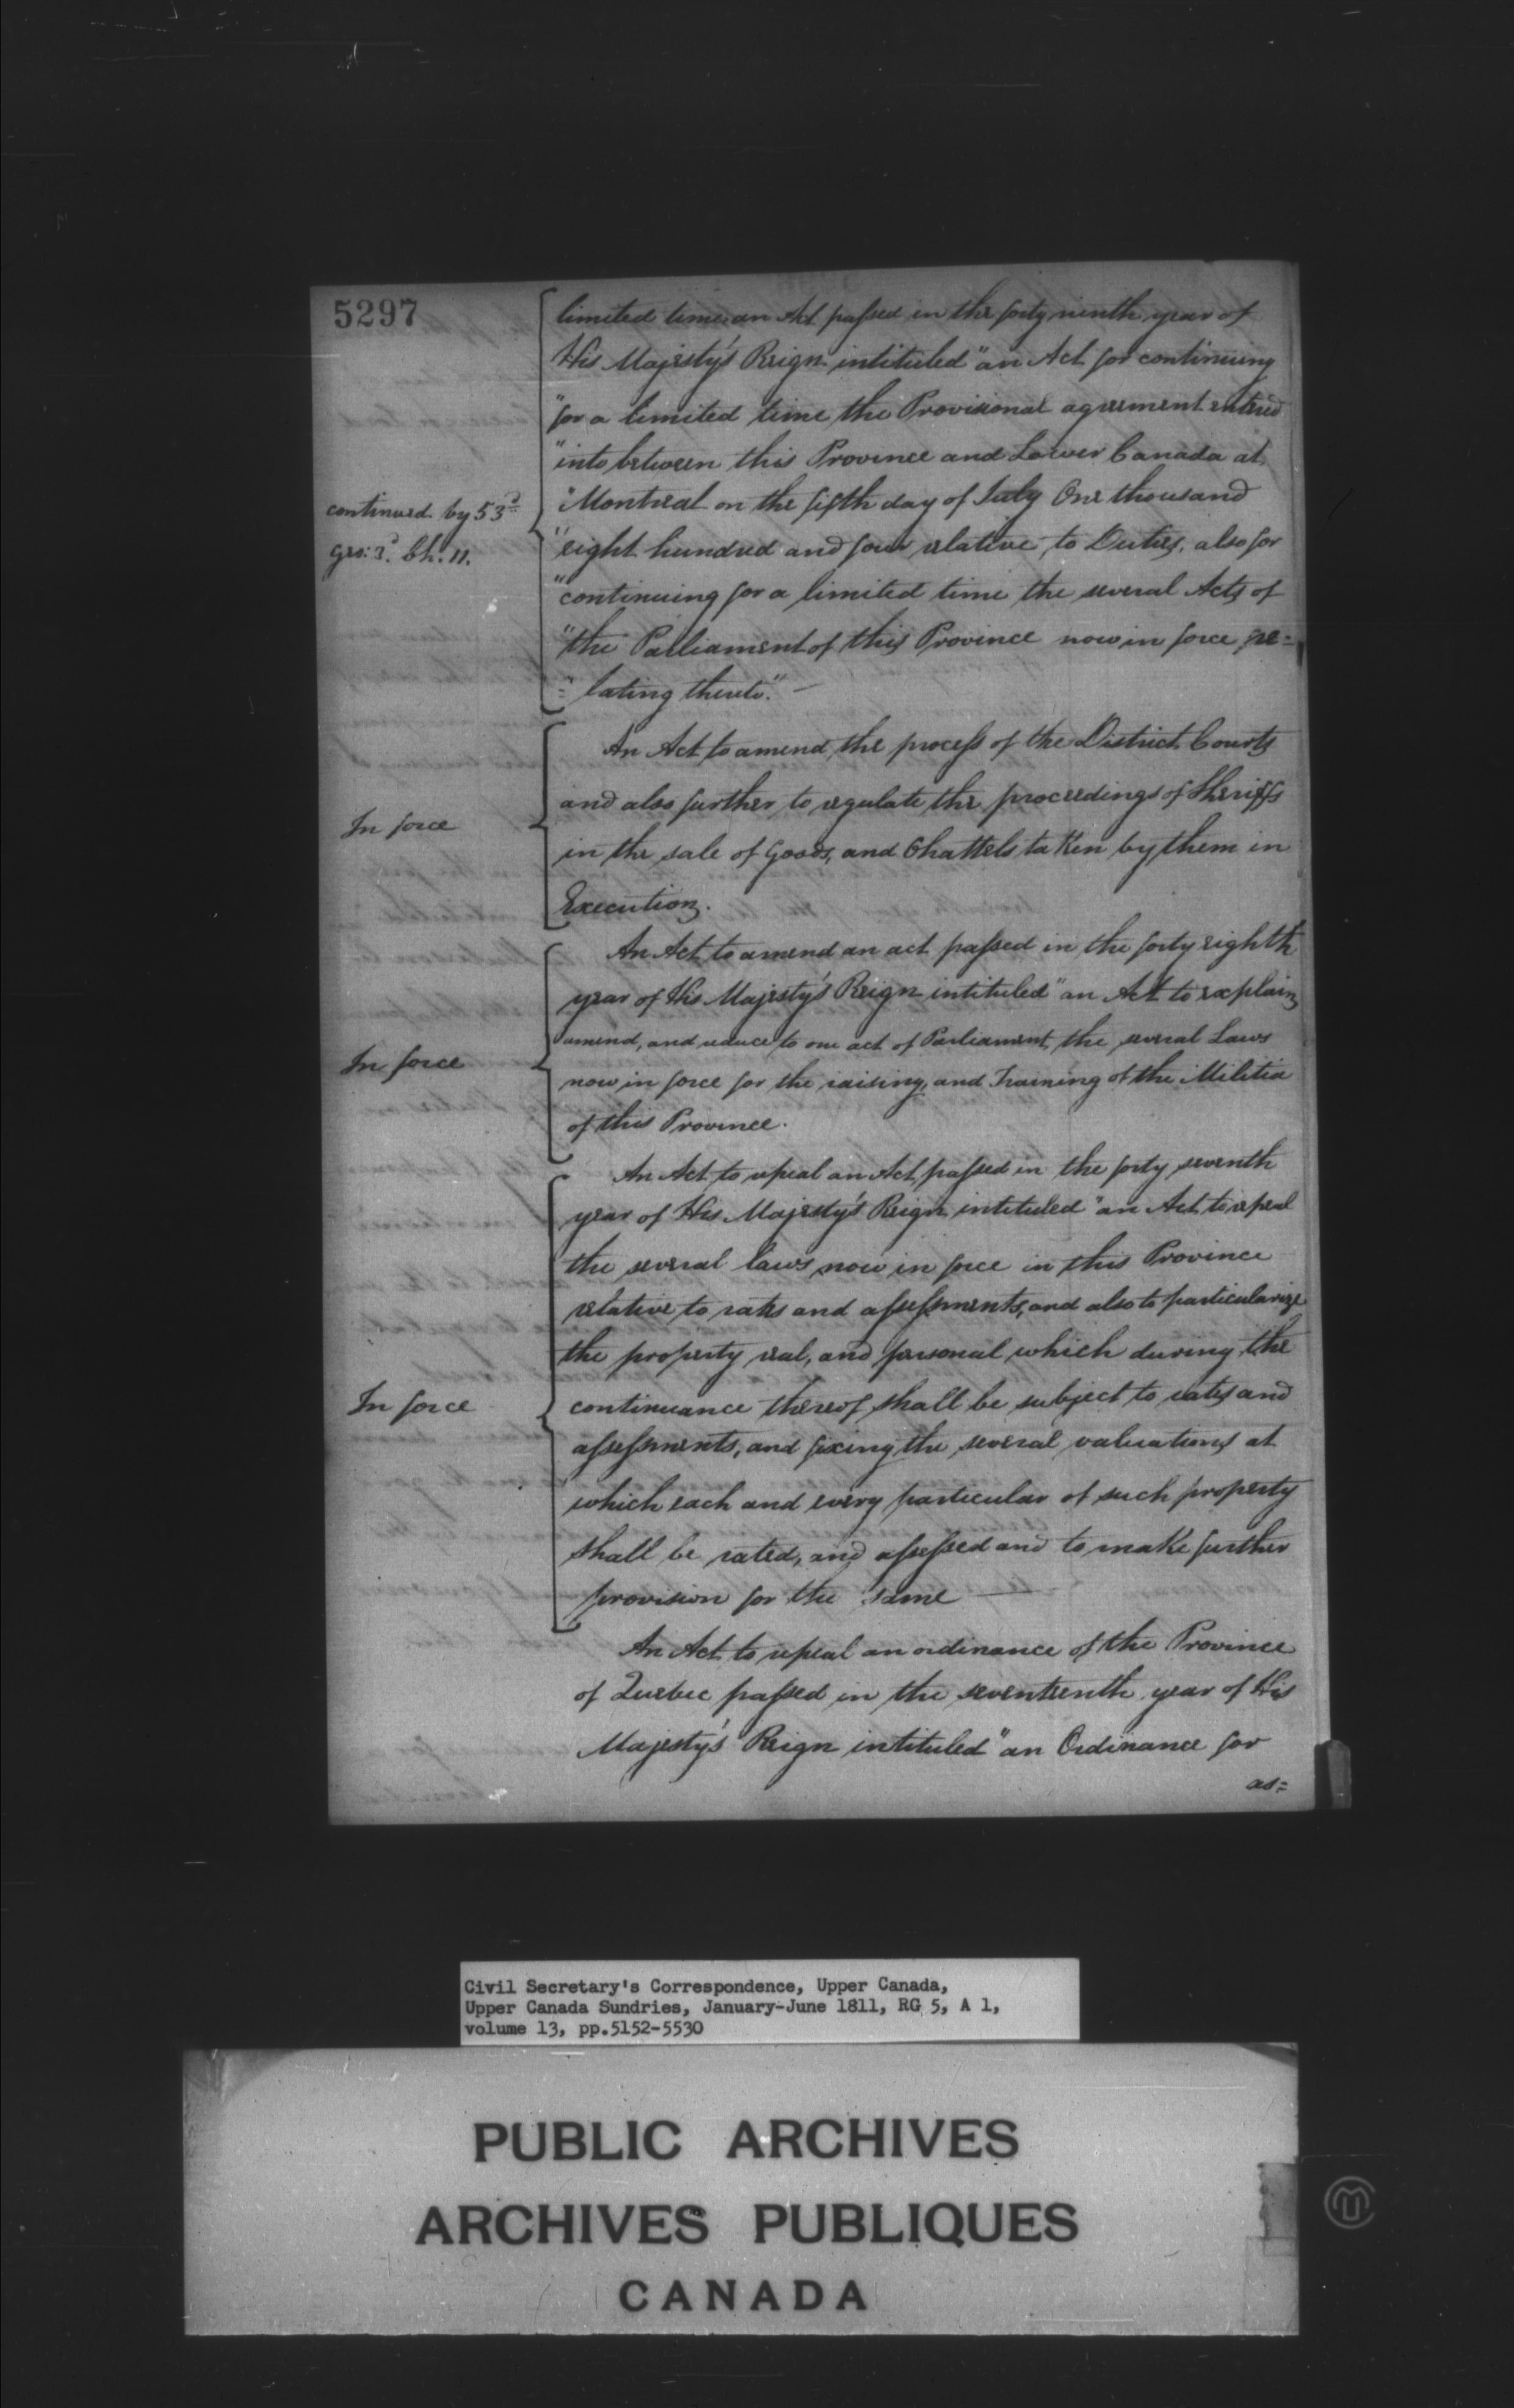 5297
limited time, an Act passed in the forty ninth year of
His Majesty's Reign intituled "an Act for continuing
"for a limited time the Provisional agreement entered
"into between this Province and Lower Canada at
"Montreal on the fifth day of July One thousand
"eight hundred and four relative to Duties, also for
"continuing for a limited time the several Acts of
"the Parliament of this Province now in force re=
"=lating thereto." —
continued by 53d
geo: 3d Ch. 11.
An Act to amend the process of the District Courts
and also further to regulate the proceedings of Sheriffs
in the sale of Goods, and Chattels taken by them in
Execution.
In force
An Act to amend an act passed in the forty eighth
year of His Majesty's Reign intituled "an Act to explain
amend, and reduce to one act of Parliament the several Laws
now in force for the raising, and Training of the Militia
of this Province.
In force
An Act to repeal an Act passed in the forty seventh
year of His Majesty's Reign intituled "an Act to repeal
the several laws now in force in this Province
relative to rates and assessments, and also to particularize
the property real, and personal which during the
continuance thereof shall be subject to rates and
assessments, and fixing the several valuations at
which each and every particular of such property
shall be rated, and assessed and to make further
provision for the same —
In force
An Act to repeal an ordinance of the Province
of Quebec passed in the seventeenth year of His
Majesty's Reign intituled "an Ordinance for
as=
Civil Secretary's Correspondence, Upper Canada,
Upper Canada Sundries, January-June 1811, RG 5, A 1,
volume 13, pp.5152-5530
PUBLIC ARCHIVES
ARCHIVES PUBLIQUES
CANADA